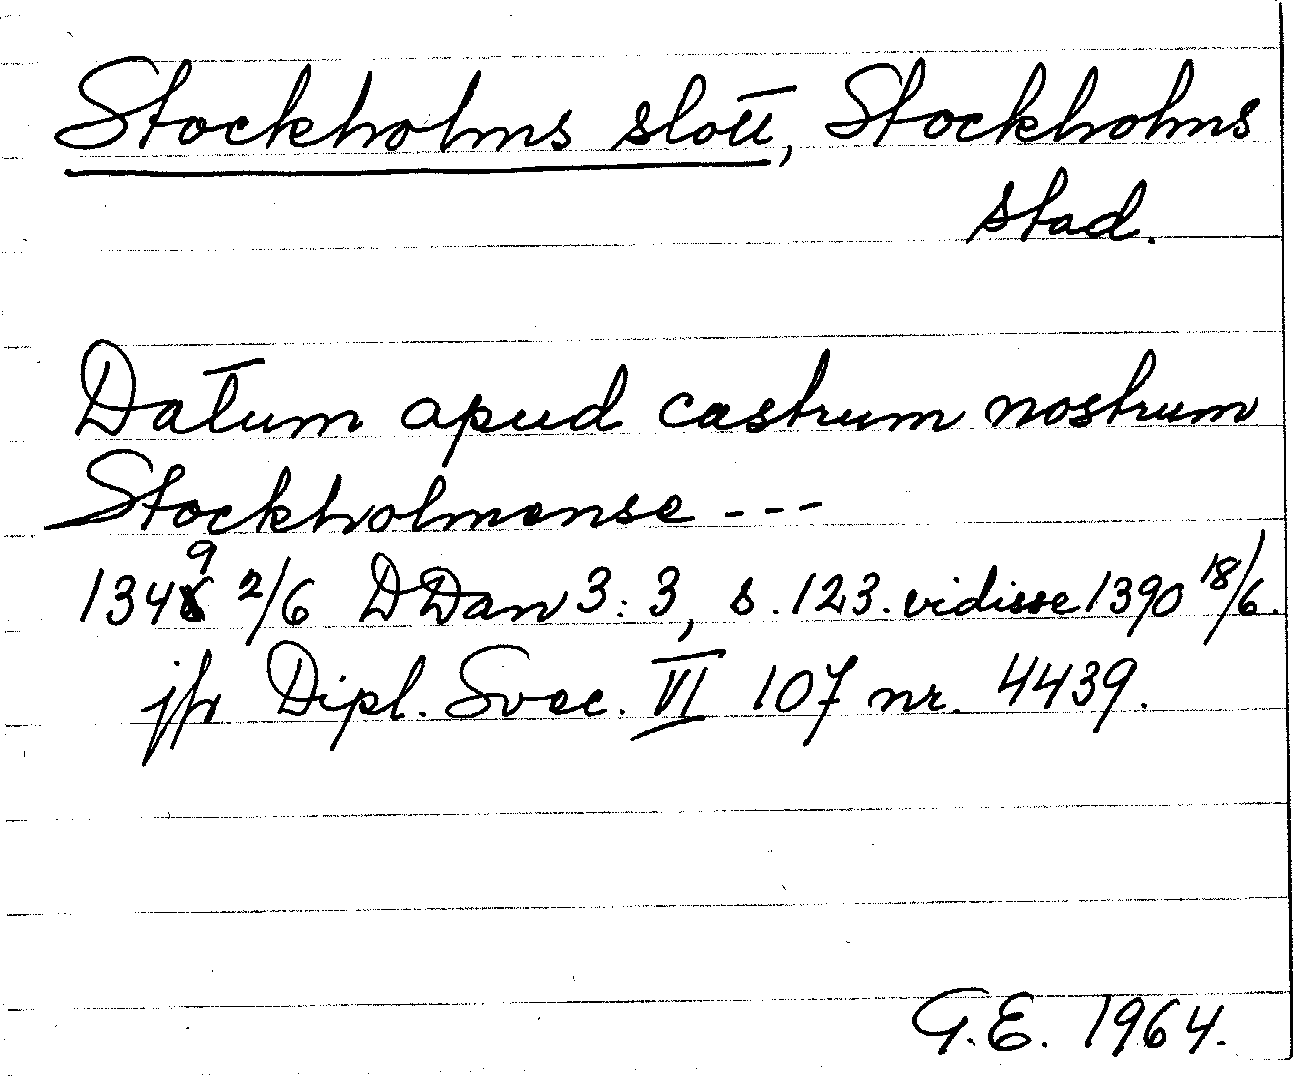 Stockholms slott, Stockholms
stad.
Datum apud castrum nostrum
Stockholmense ---
1349 2/6 DDan 3:3, s. 123. vidisse 1390 18/6.
jfr Dipl. Svec. VI 107 nr. 4439.
G.E. 1964.